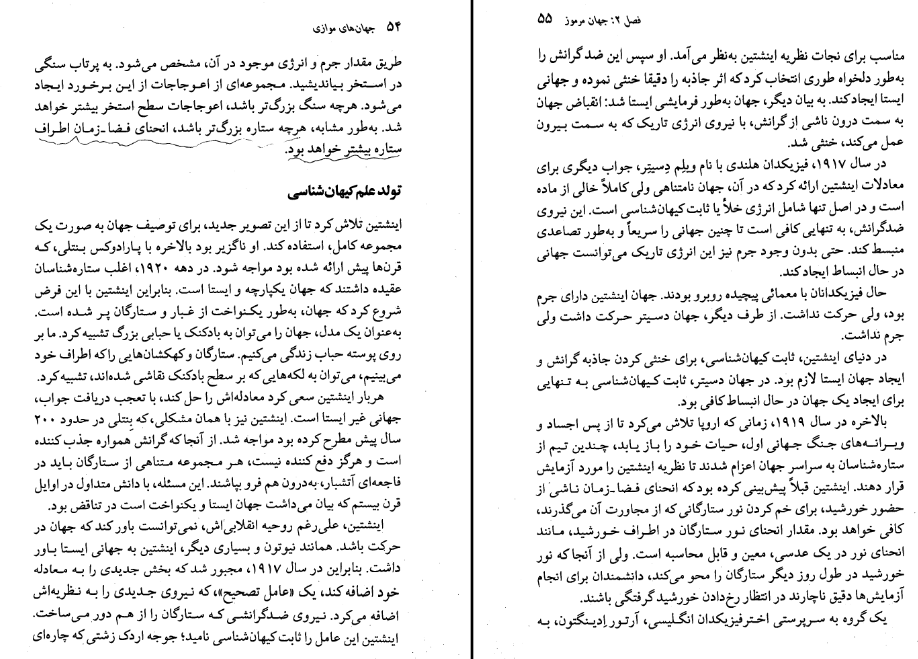 ۵۴ جهان‌های موازی
طریق مقدار جرم و انرژی موجود در آن، مشخص می‌شود. به پرتاب سنگی
در استخر بیاندیشید. مجموعه‌ای از اعوجاجات از این برخورد ایجاد
می‌شود. هرچه سنگ بزرگ‌تر باشد، اعوجاجات سطح استخر بیشتر خواهد
شد. به‌طور مشابه، هرچه ستاره بزرگ‌تر باشد، انحنای فضا-زمان اطراف
ستاره بیشتر خواهد بود.
تولد علم کیهان‌شناسی
اینشتین تلاش کرد تا از این تصویر جدید، برای توصیف جهان به صورت یک
مجموعه کامل، استفاده کند. او ناگزیر بود بالاخره با پارادوکس بنتلی، که
قرن‌ها پیش ارائه شده بود مواجه شود. در دهه ۱۹۲۰، اغلب ستاره‌شناسان
عقیده داشتند که جهان یکپارچه و ایستا است. بنابراین اینشتین با این فرض
شروع کرد که جهان، به‌طور یکنواخت از غبار و ستارگان پر شده است.
به‌عنوان یک مدل، جهان را می‌توان به بادکنک یا حبابی بزرگ تشبیه کرد. ما بر
روی پوسته حباب زندگی می‌کنیم. ستارگان و کهکشان‌هایی را که اطراف خود
می‌بینیم، می‌توان به لکه‌هایی که بر سطح بادکنک نقاشی شده‌اند، تشبیه کرد.
هربار اینشتین سعی کرد معادله‌اش را حل کند، با تعجب دریافت جواب،
جهانی غیر ایستا است. اینشتین نیز با همان مشکلی، که بنتلی در حدود ۲۰۰
سال پیش مطرح کرده بود مواجه شد. از آنجا که گرانش همواره جذب کننده
است و هرگز دفع کننده نیست، هر مجموعه متناهی از ستارگان باید در
فاجعه‌ای آتشبار، به‌درون هم فرو بپاشند. این مسئله، با دانش متداول در اوایل
قرن بیستم که بیان می‌داشت جهان ایستا و یکنواخت است در تناقض بود.
اینشتین، علی‌رغم روحیه انقلابی‌اش، نمی‌توانست باور کند که جهان در
حرکت باشد. همانند نیوتون و بسیاری دیگر، اینشتین به جهانی ایستا باور
داشت. بنابراین در سال ۱۹۱۷، مجبور شد که بخش جدیدی را به معادله
خود اضافه کند، یک «عامل تصحیح»، که نیروی جدیدی را به نظریه‌اش
اضافه می‌کرد. نیروی ضدگرانشی که ستارگان را از هم دور می‌ساخت.
اینشتین این عامل را ثابت کیهان‌شناسی نامید؛ جوجه اردک زشتی که چاره‌ای
فصل ۲: جهان مرموز ۵۵
مناسب برای نجات نظریه اینشتین به‌نظر می‌آمد. او سپس این ضدگرانش را
به‌طور دلخواه طوری انتخاب کرد که اثر جاذبه را دقیقا خنثی نموده و جهانی
ایستا ایجاد کند. به بیان دیگر، جهان به‌طور فرمایشی ایستا شد: انقباض جهان
به سمت درون ناشی از گرانش، با نیروی انرژی تاریک که به سمت بیرون
عمل می‌کند، خنثی شد.
در سال ۱۹۱۷، فیزیکدان هلندی با نام ویلِم دِسیتِر، جواب دیگری برای
معادلات اینشتین ارائه کرد که در آن، جهان نامتناهی ولی کاملاً خالی از ماده
است و در اصل تنها شامل انرژی خلأ یا ثابت کیهان‌شناسی است. این نیروی
ضدگرانش، به تنهایی کافی است تا چنین جهانی را سریعاً و به‌طور تصاعدی
منبسط کند. حتی بدون وجود جرم نیز این انرژی تاریک می‌توانست جهانی
در حال انبساط ایجاد کند.
حال فیزیکدانان با معمائی پیچیده روبرو بودند. جهان اینشتین دارای جرم
بود، ولی حرکت نداشت. از طرف دیگر، جهان دسیتر حرکت داشت ولی
جرم نداشت.
در دنیای اینشتین، ثابت کیهان‌شناسی، برای خنثی کردن جاذبه گرانش و
ایجاد جهان ایستا لازم بود. در جهان دسیتر، ثابت کیهان‌شناسی به تنهایی
برای ایجاد یک جهان در حال انبساط کافی بود.
بالاخره در سال ۱۹۱۹، زمانی که اروپا تلاش می‌کرد تا از پس اجساد و
ویرانه‌های جنگ جهانی اول، حیات خود را باز یابد، چندین تیم از
ستاره‌شناسان به سراسر جهان اعزام شدند تا نظریه اینشتین را مورد آزمایش
قرار دهند. اینشتین قبلاً پیش‌بینی کرده بود که انحنای فضا-زمان ناشی از
حضور خورشید، برای خم کردن نور ستارگانی که از مجاورت آن می‌گذرند،
کافی خواهد بود. مقدار انحنای نور ستارگان در اطراف خورشید، مانند
انحنای نور در یک عدسی، معین و قابل محاسبه است. ولی از آنجا که نور
خورشید در طول روز دیگر ستارگان را محو می‌کند، دانشمندان برای انجام
آزمایش‌ها دقیق ناچارند در انتظار رخ‌دادن خورشیدگرفتگی باشند.
یک گروه به سرپرستی اخترفیزیکدان انگلیسی، آرتور اِدینگتون، به